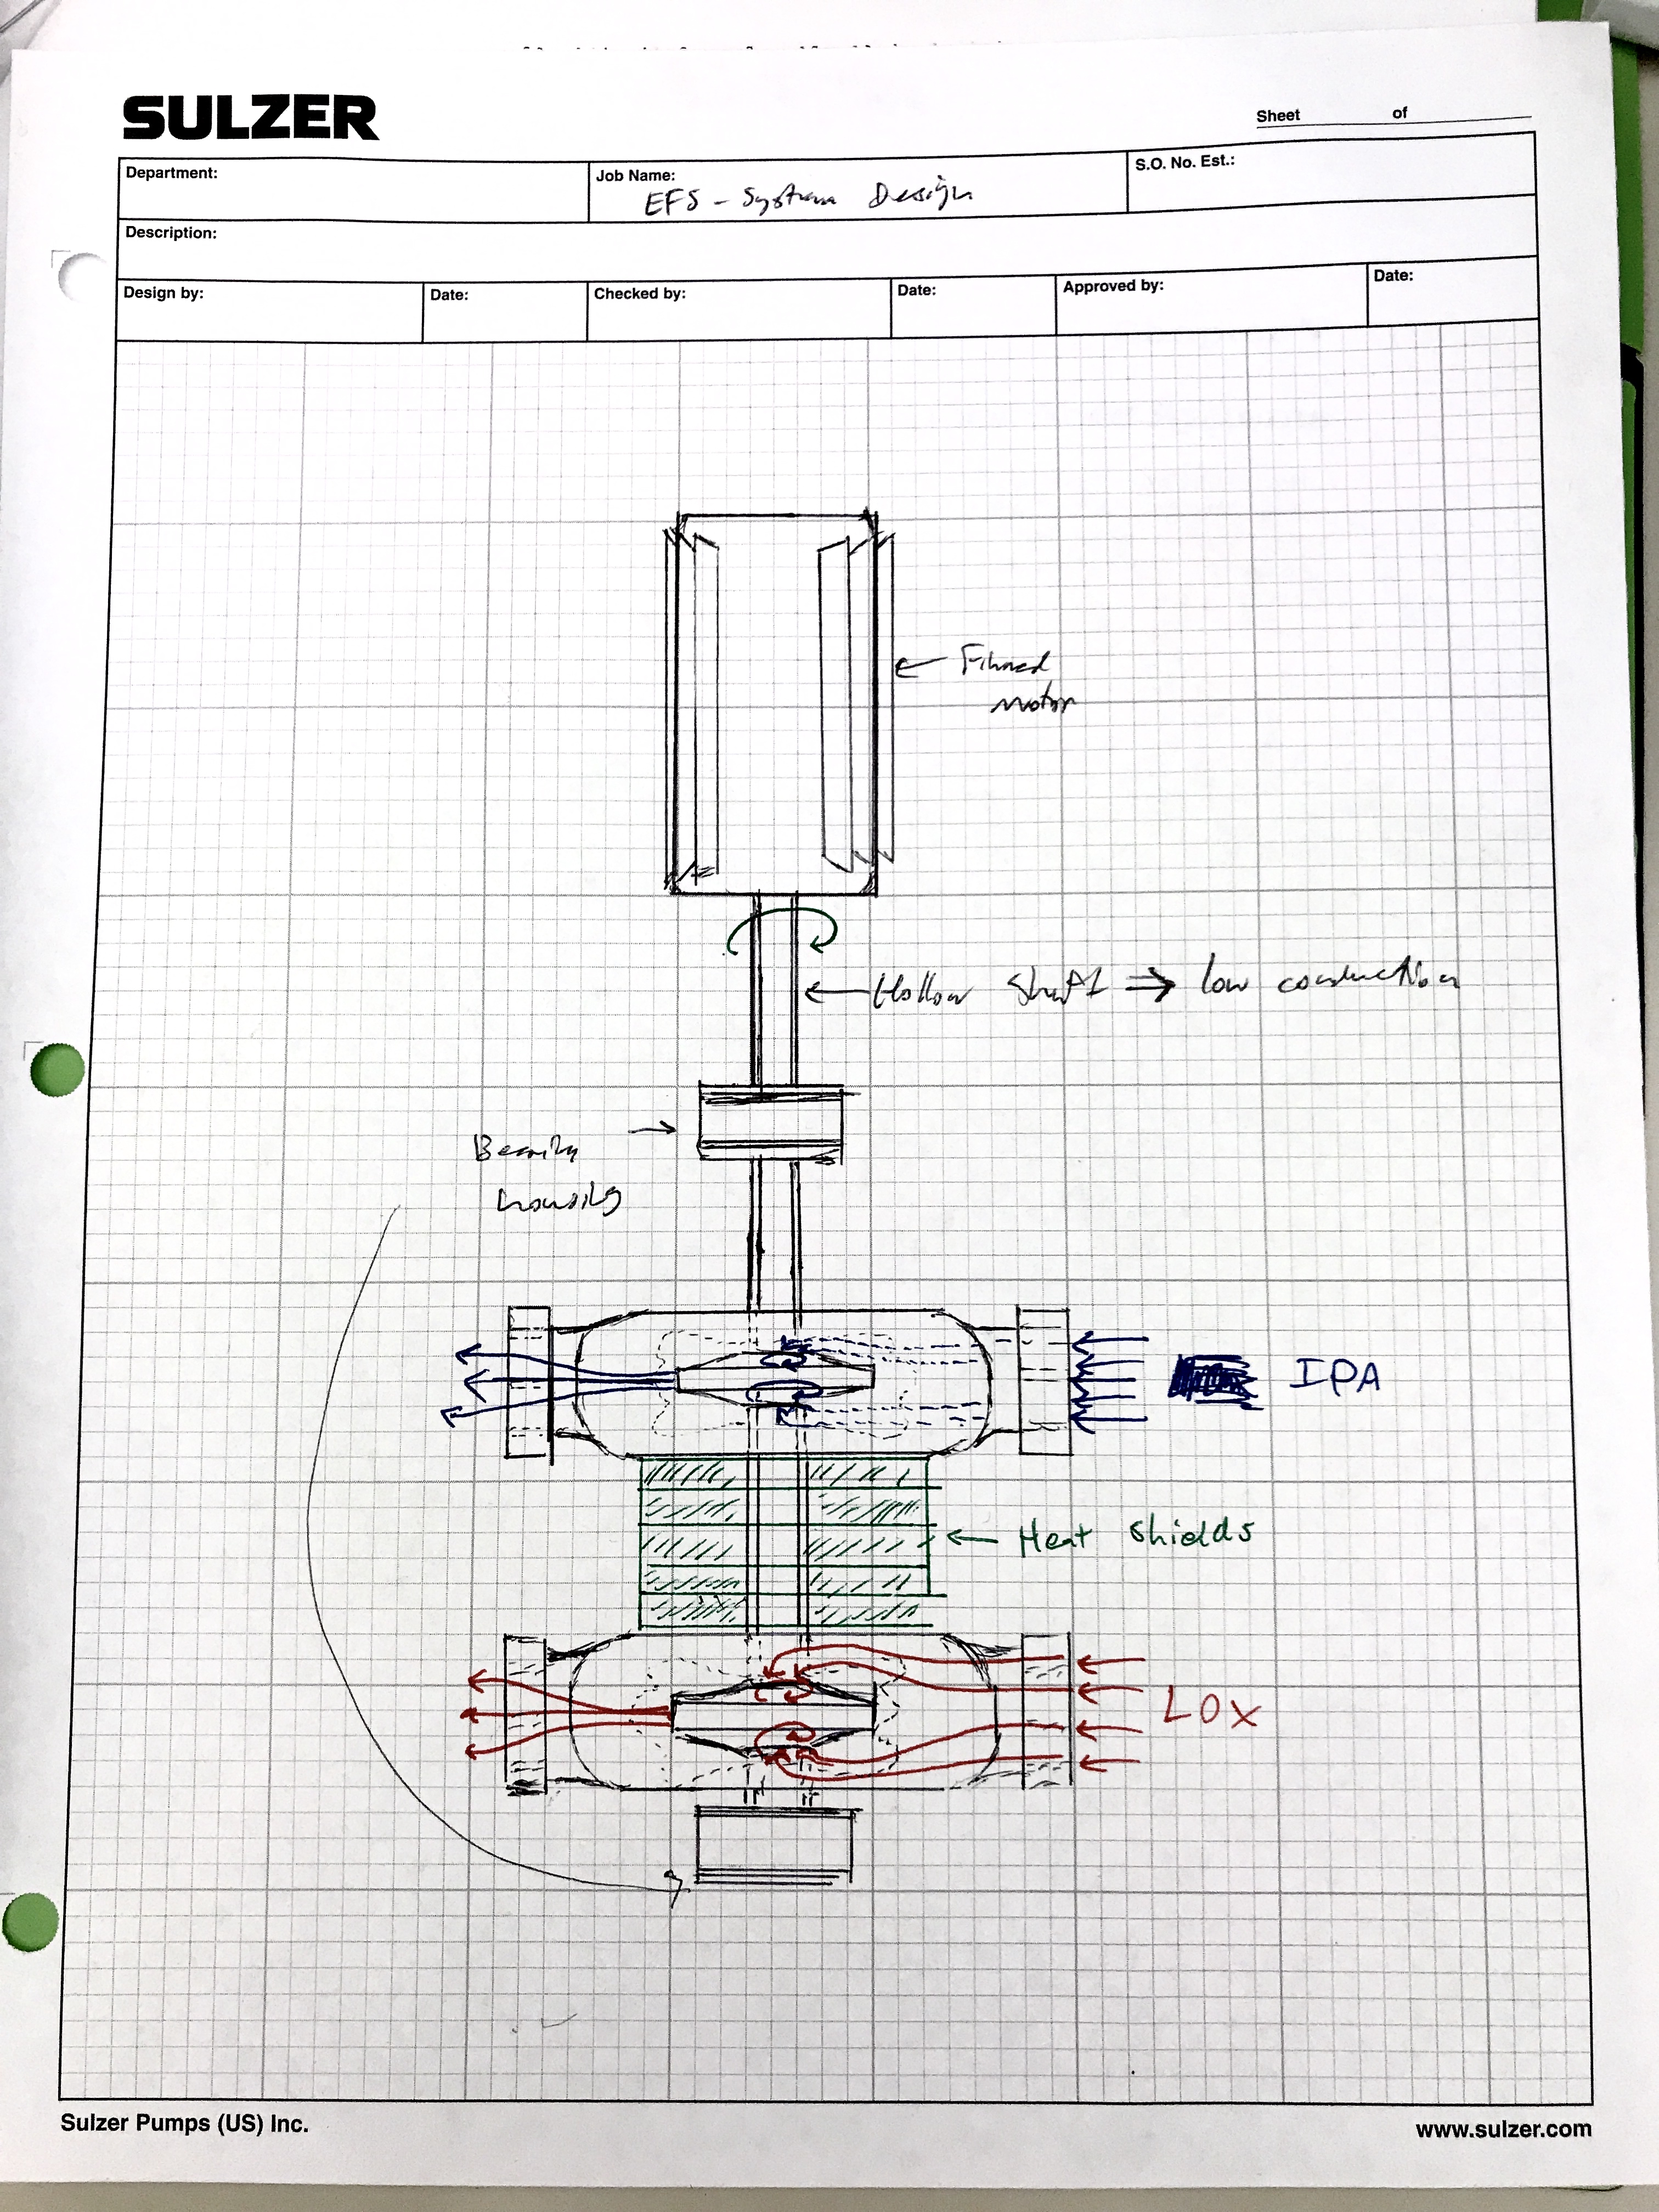 SULZER
Sheet of
Department:
Job Name:
EFS - System Design
S.O. No. Est.:
Description:
Design by:
Date:
Checked by:
Date:
Approved by:
Date:
Finned
motor
Hollow shaft ⇒ low conduction
Bearing
housing
IPA
Heat shields
LOX
Sulzer Pumps (US) Inc.
www.sulzer.com